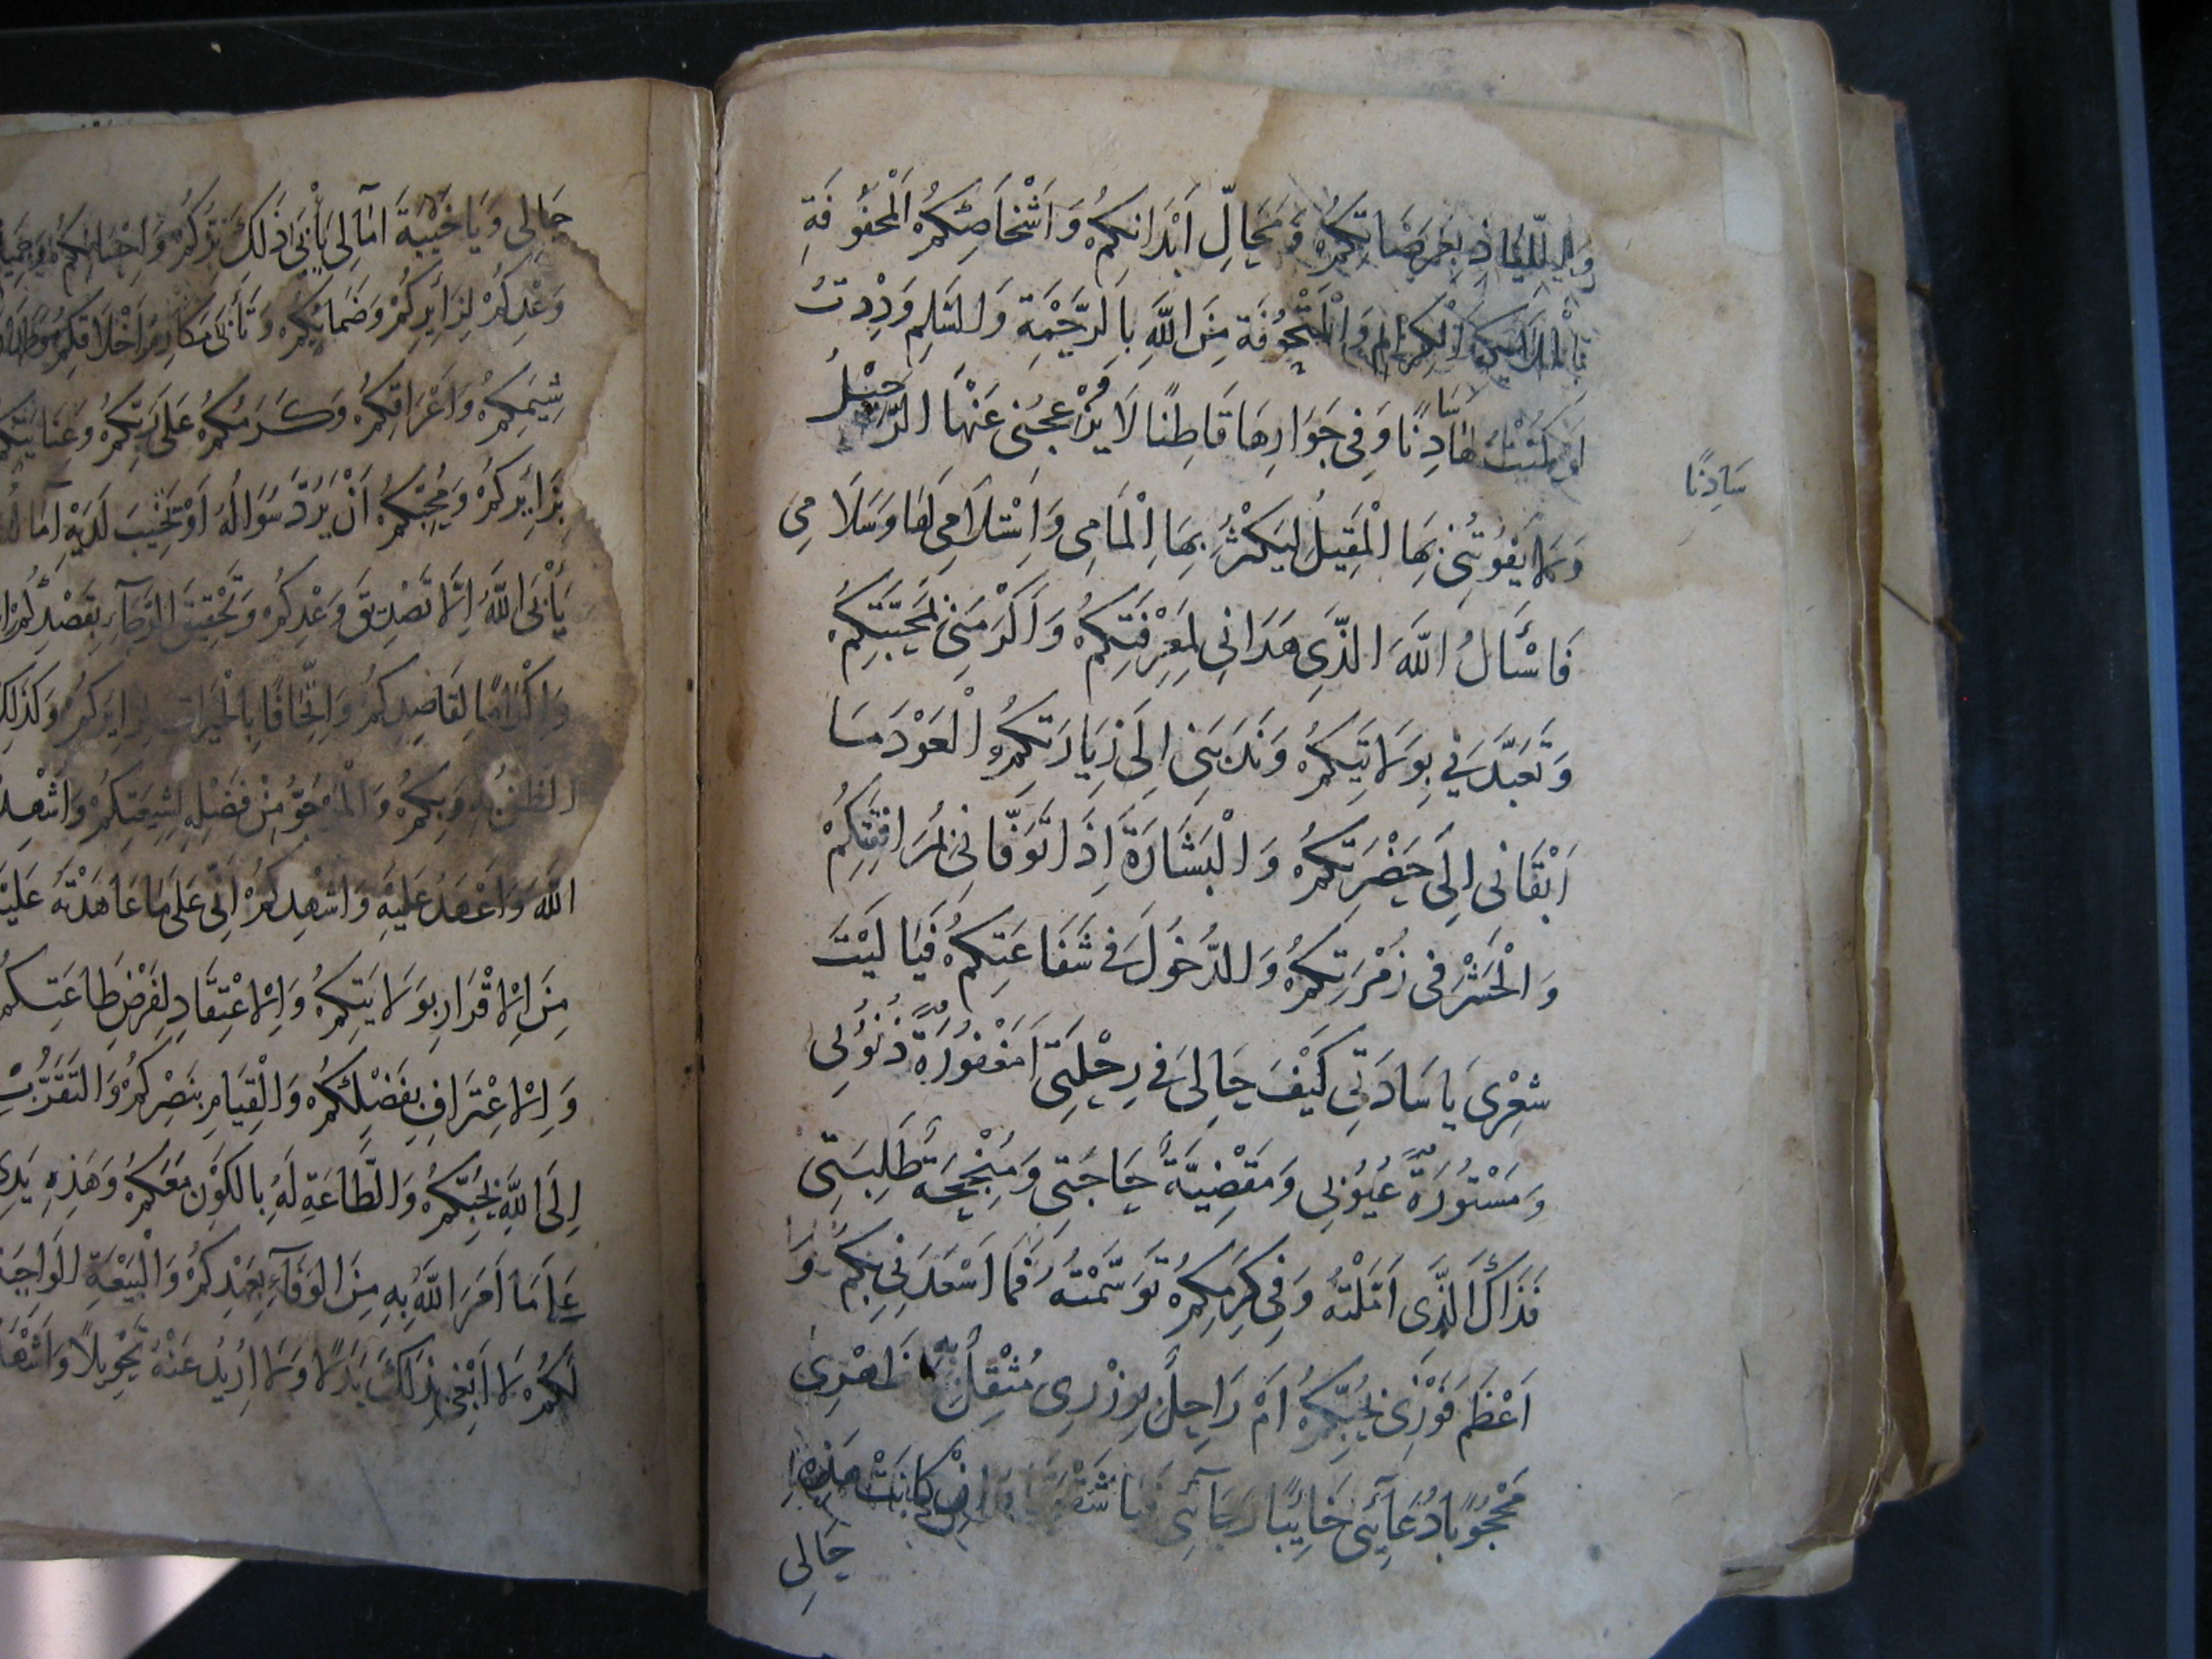 وَاللِّيَاذِ بِعَرَصَاتِكُمْ وَمَحَالِّ اَبْدَانِكُمْ وَاَشْخَاصِكُمُ الْمَحْفُوفَةِ
الْكِرَامِ وَالْمَتْحُوفَةِ مِنَ اللَّهِ بِالرَّحْمَةِ وَالسَّلامِ وَدِدْتُ
لَوْ كُنْتُ لَهَا سَادِنًا وَفِي جَوَارِهَا قَاطِنًا لَا يُزْعِجُنِي عَنْهَا الرَّحِيلُ
سَادِنًا
وَلَا يَفُوتُنِي بِهَا الْمَقِيلُ لِيَكْثُرَ بِهَا اِلْمَامِي وَاسْتِلَامِي لَهَا وَسَلَامِي
فَاَسْأَلُ اللَّهَ الَّذِي هَدَانِي لِمَعْرِفَتِكُمْ وَاَكْرَمَنِي بِمَحَبَّتِكُمْ
وَتَعَبَّدَنِي بِوَلَايَتِكُمْ وَنَدَبَنِي اِلَى زِيَارَتِكُمُ الْعَوْدَ مَا
اَبْقَانِي اِلَى حَضْرَتِكُمْ وَالْبَشَارَةَ اِذَا تَوَفَّانِي بِمُرَافَقَتِكُمْ
وَالْحَشْرَ فِي زُمْرَتِكُمْ وَالدُّخُولَ فِي شَفَاعَتِكُمْ فَيَا لَيْتَ
شِعْرِي يَا سَادَتِي كَيْفَ حَالِي فِي رِحْلَتِي اَمَغْفُورَةٌ ذُنُوبِي
وَمَسْتُورَةٌ عُيُوبِي وَمَقْضِيَّةٌ حَاجَتِي وَمُنْجِحَةٌ طَلِبَتِي
فَذَاكَ الَّذِي اَمَّلْتُهُ وَفِي كَرَمِكُمْ تَوَسَّمْتُهُ فَمَا اَسْعَدَنِي بِكُمْ وَ
اَعْظَمَ فَوْزِي بِحُبِّكُمْ اَمْ رَاحِلٌ بِوِزْرِي مُثْقِلٌ ظَهْرِي
مَحْجُوبًا دُعَائِي خَائِبًا رَجَائِي فَيَا شَقْوَتَا اِنْ كَانَتْ هَذِهِ
حَالِي
حَالِي وَيَا خَيْبَةَ آمَالِي يَأْبَى ذَلِكَ بِرُّكُمْ وَاِحْسَانُكُمْ
وَعْدِكُمْ لِزَايِرِكُمْ وَضَمَانِكُمْ وَتَأْبَى مَكَارِمُ اَخْلَاقِكُمْ
شِيَمِكُمْ وَاَعْرَاقِكُمْ وَكَرَمُكُمْ عَلَى رَبِّكُمْ وَعِنَايَتُكُمْ
بِزَائِرِكُمْ وَمُحِبِّكُمْ اَنْ يَرُدَّ سُؤَالَهُ اَوْ تَخِيبَ لَدَيْهِ آمَالُهُ
يَأْبَى اللَّهُ اِلَّا تَصْدِيقَ وَعْدِكُمْ وَتَحْقِيقَ الرَّجَاءِ بِقَصْدِكُمْ
وَاِكْرَامًا لِقَاصِدِكُمْ وَاِتْحَافًا بِالْخَيْرَاتِ لِزَايِرِكُمْ وَكَذَلِكَ
الظَّنُّ بِهِ وَبِكُمْ وَالْمَرْجُوُّ مِنْ فَضْلِهِ لِشِيعَتِكُمْ وَاُشْهِدُ
اللَّهَ وَاَعْهَدُ عَلَيْهِ وَاُشْهِدُكُمْ اَنِّي عَلَى مَا عَاهَدْتُهُ عَلَيْهِ
مِنَ الِاقْرَارِ بِوَلَايَتِكُمْ وَالِاعْتِقَادِ لِفَرْضِ طَاعَتِكُمْ
وَالِاعْتِرَافِ بِفَضْلِكُمْ وَالْقِيَامِ بِنَصْرِكُمْ وَالتَّقَرُّبِ
اِلَى اللَّهِ بِحُبِّكُمْ وَالطَّاعَةِ لَهُ بِالْكَوْنِ مَعَكُمْ وَهَذِهِ يَدِي
عَلَى مَا اَمَرَ اللَّهُ بِهِ مِنَ الْوَفَاءِ بِعَهْدِكُمْ وَالْبَيْعَةِ الْوَاجِبَةِ
لَكُمْ لَا اَبْغِي بِذَلِكَ بَدَلًا وَلَا اُرِيدُ عَنْهُ تَحْوِيلًا وَاَشْهَدُ